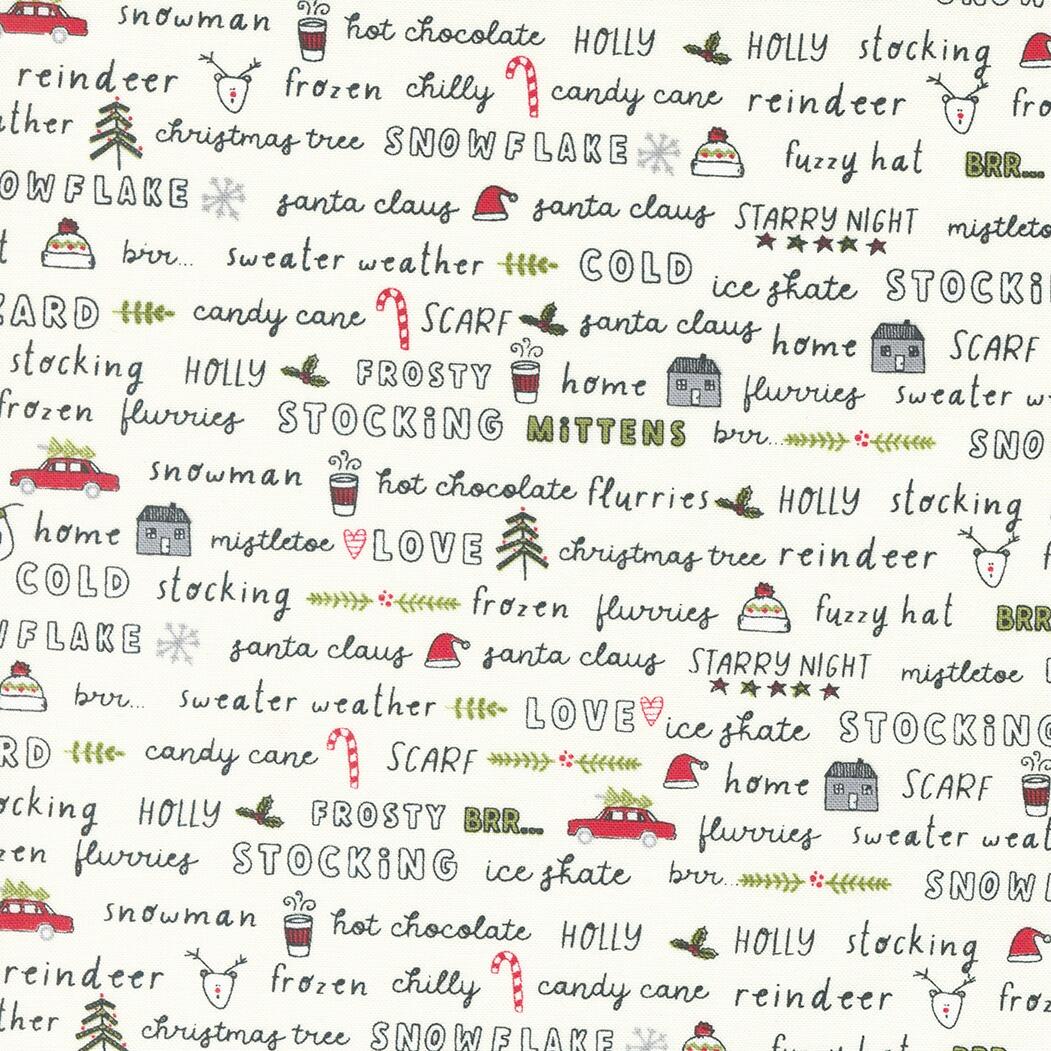 SNOW
snowman hot chocolate HOLLY HOLLY stocking
reindeer frozen chilly candy cane reindeer fro
ther christmas tree SNOWFLAKE fuzzy hat BRR...
OWFLAKE santa claus santa claus STARRY NIGHT mistleto
t brr... sweater weather COLD ice skate STOCKi
ZARD candy cane SCARF santa claus home SCARF
stocking HOLLY FROSTY home flurries sweater w
frozen flurries STOCKiNG MiTTENS brr... SNO
snowman hot chocolate flurries HOLLY stocking
home mistletoe LOVE christmas tree reindeer f
COLD stocking frozen flurries fuzzy hat BRR
WFLAKE santa claus santa claus STARRY NIGHT mistletoe
brr... sweater weather LOVE ice skate STOCKiNG
RD candy cane SCARF home SCARF
ocking HOLLY FROSTY BRR... flurries sweater weat
zen flurries STOCKiNG ice skate brr... SNOW
snowman hot chocolate HOLLY HOLLY stocking
reindeer frozen chilly candy cane reindeer froz
ther christmas tree SNOWFLAKE fuzzy hat BRR...